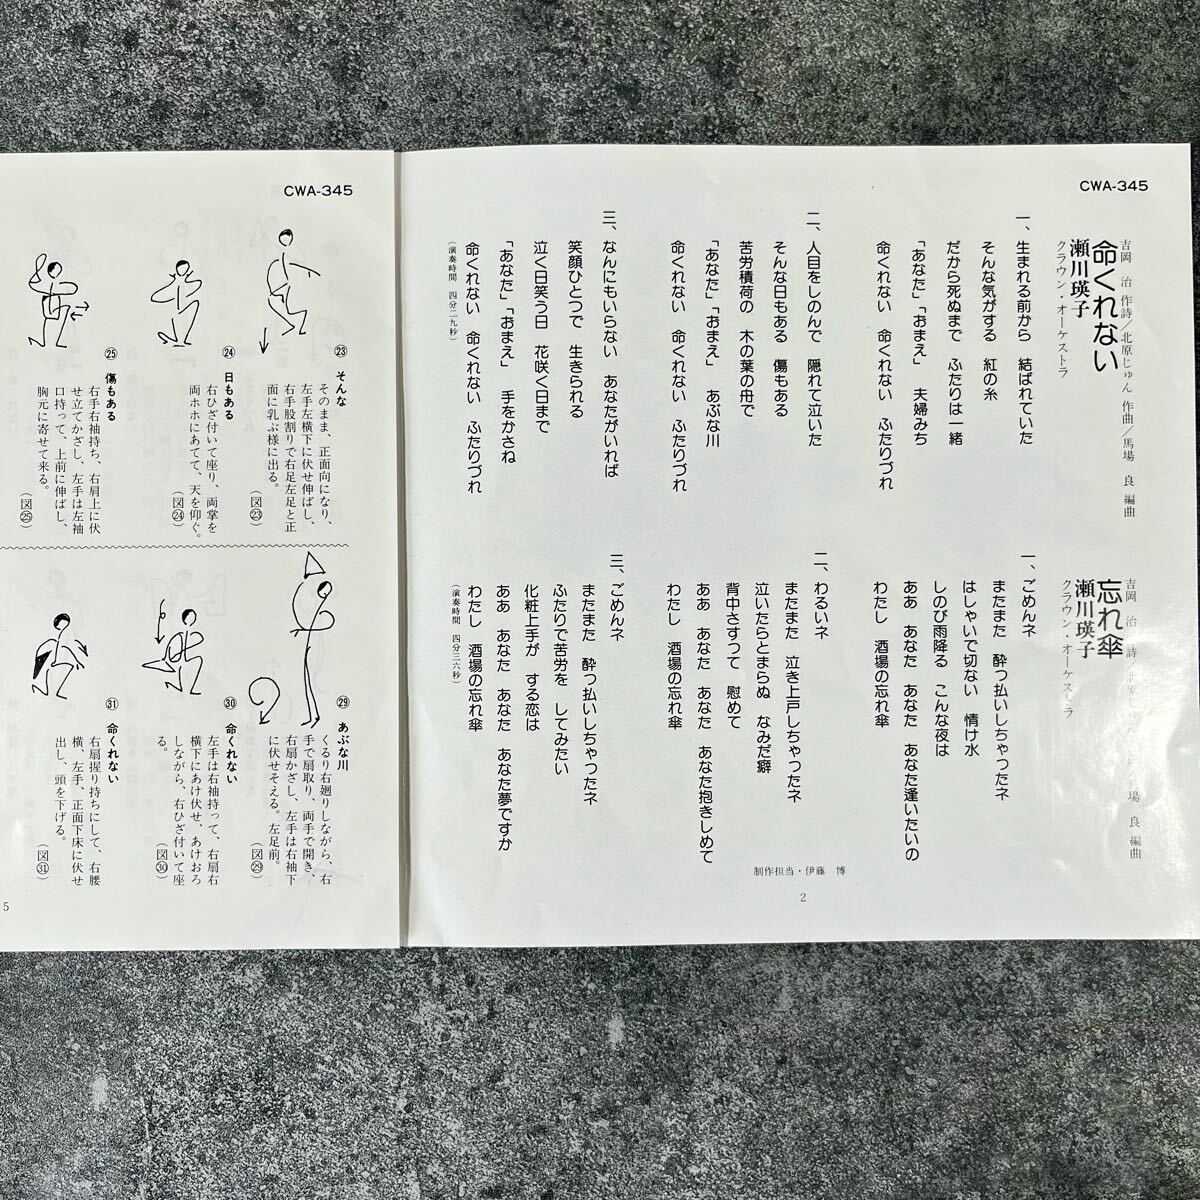 CWA-345
吉岡 治 作詩/北原じゅん 作曲/馬場 良 編曲
命くれない
瀬川瑛子
クラウン・オーケストラ
一、生まれる前から 結ばれていた
そんな気がする 紅の糸
だから死ぬまで ふたりは一緒
「あなた」「おまえ」 夫婦みち
命くれない 命くれない ふたりづれ
二、人目をしのんで 隠れて泣いた
そんな日もある 傷もある
苦労積荷の 木の葉の舟で
「あなた」「おまえ」 あぶな川
命くれない 命くれない ふたりづれ
三、なんにもいらない あなたがいれば
笑顔ひとつで 生きられる
泣く日笑う日 花咲く日まで
「あなた」「おまえ」 手をかさね
命くれない 命くれない ふたりづれ
(演奏時間 四分二九秒)
吉岡 治 詩/北原 場 良 編曲
忘れ傘
瀬川瑛子
クラウン・オーケストラ
一、ごめんネ
またまた 酔っ払いしちゃったネ
はしゃいで切ない 情け水
しのび雨降る こんな夜は
ああ あなた あなた あなた逢いたいの
わたし 酒場の忘れ傘
二、わるいネ
またまた 泣き上戸しちゃったネ
泣いたらとまらぬ なみだ癖
背中さすって 慰めて
ああ あなた あなた あなた抱きしめて
わたし 酒場の忘れ傘
三、ごめんネ
またまた 酔っ払いしちゃったネ
ふたりで苦労を してみたい
化粧上手が する恋は
ああ あなた あなた あなた夢ですか
わたし 酒場の忘れ傘
(演奏時間 四分三六秒)
制作担当・伊藤 博
2
CWA-345
㉓ そんな
そのまま、正面向になり、
左手左横下に伏せ伸ばし、
右手股割りで右足左足と正
面に乳ぶ様に出る。
(図㉓)
㉔ 日もある
右ひざ付いて座り、両掌を
両ホホにあてて、天を仰ぐ。
(図㉔)
㉕ 傷もある
右手右袖持ち、右肩上に伏
せ立てかざし、左手は左袖
口持って、上前に伸ばし、
胸元に寄せて来る。
(図㉕)
㉙ あぶな川
くるり右廻りしながら、右
手で扇取り、両手で開き、
右扇かざし、左手は右袖下
に伏せそえる。左足前。
(図㉙)
㉚ 命くれない
左手は右袖持って、右扇右
横下にあけ伏せ、あけおろ
しながら、右ひざ付いて座
る。
(図㉚)
㉛ 命くれない
右扇握り持ちにして、右腰
横、左手、正面下床に伏せ
出し、頭を下げる。
(図㉛)
5